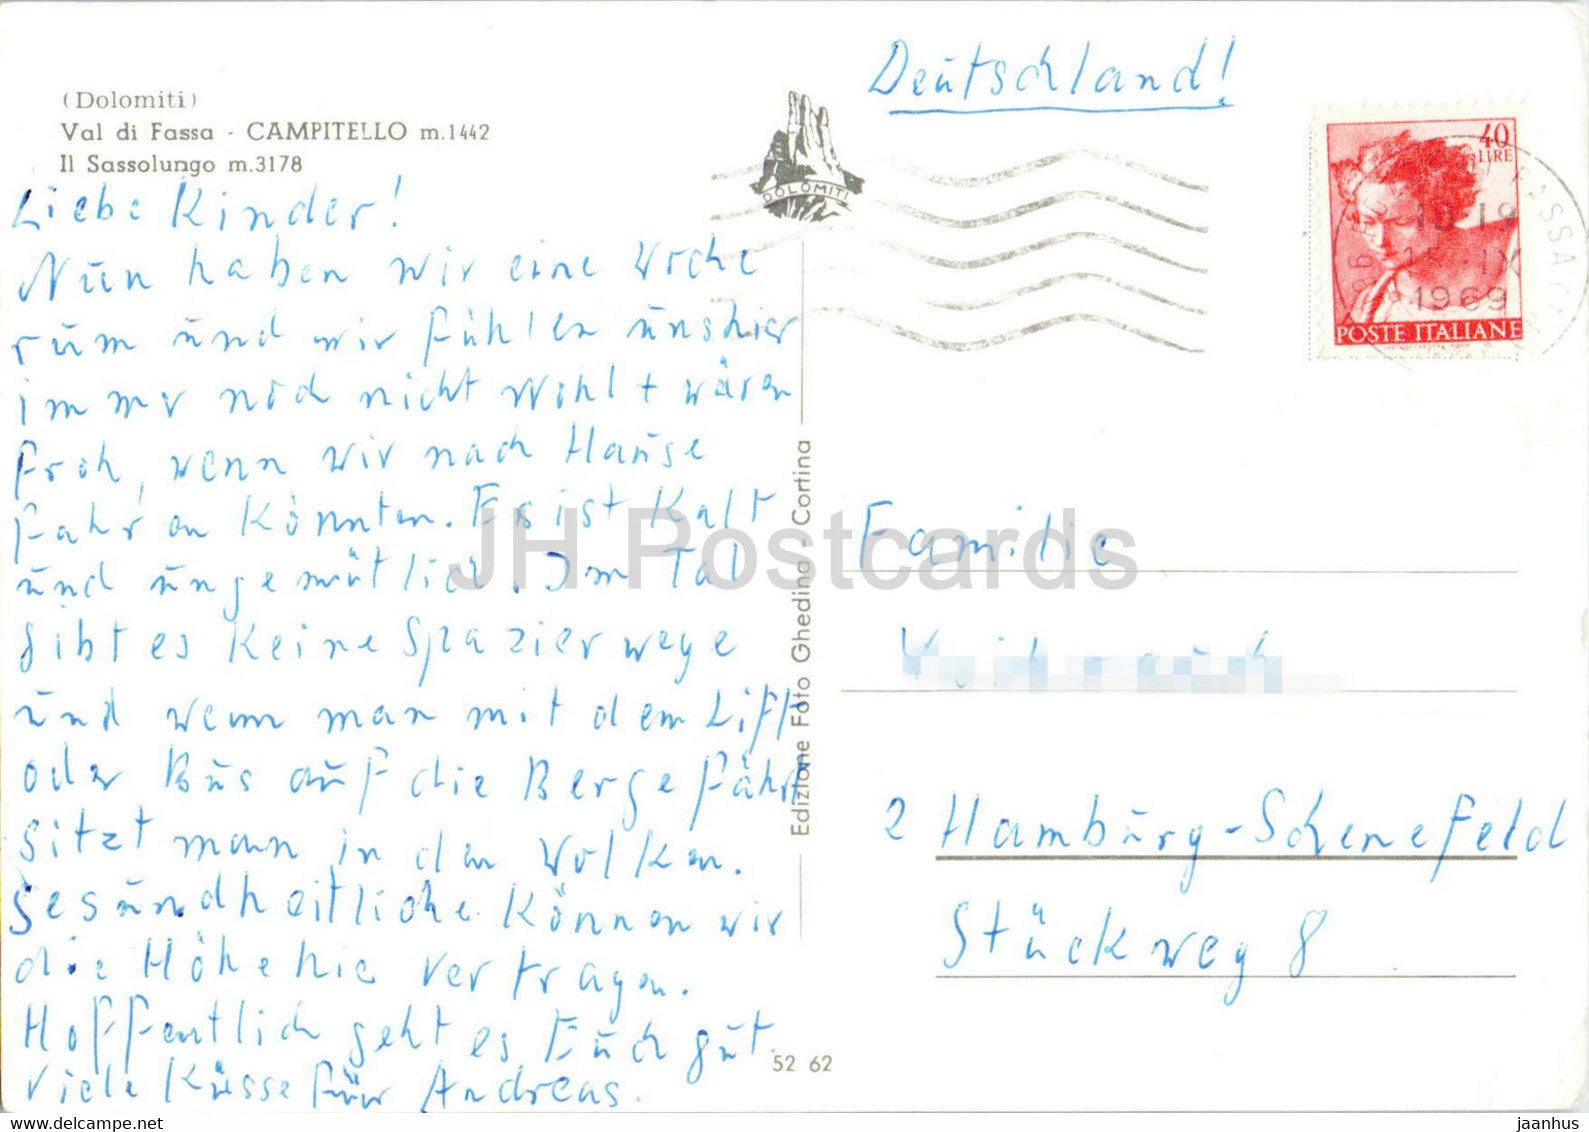 (Dolomiti)
Val di Fassa - CAMPITELLO m.1442
Il Sassolungo m.3178
Liebe Kinder!
Nun haben wir eine Woche
rum und wir fühlen uns hier
immer noch nicht wohl + wären
froh, wenn wir nach Hause
fahren könnten. Es ist kalt
und ungemütlich. Im Tal
gibt es keine Spazierwege
und wenn man mit dem Lift
oder Bus auf die Berge fährt
sitzt man in den Wolken.
Gesundheitliche können wir
die Höhe hie vertragen.
Hoffentlich geht es Euch gut.
Viele Küsse für Andreas.
DOLOMITI
Edizione Foto Ghedina - Cortina
52 62
Deutschland!
40
LIRE
POSTE ITALIANE
FASSA
18-19
15·IX
1969
Familie
2 Hamburg-Schenefeld
Stückweg 8
JH Postcards
www.delcampe.net
jaanhus